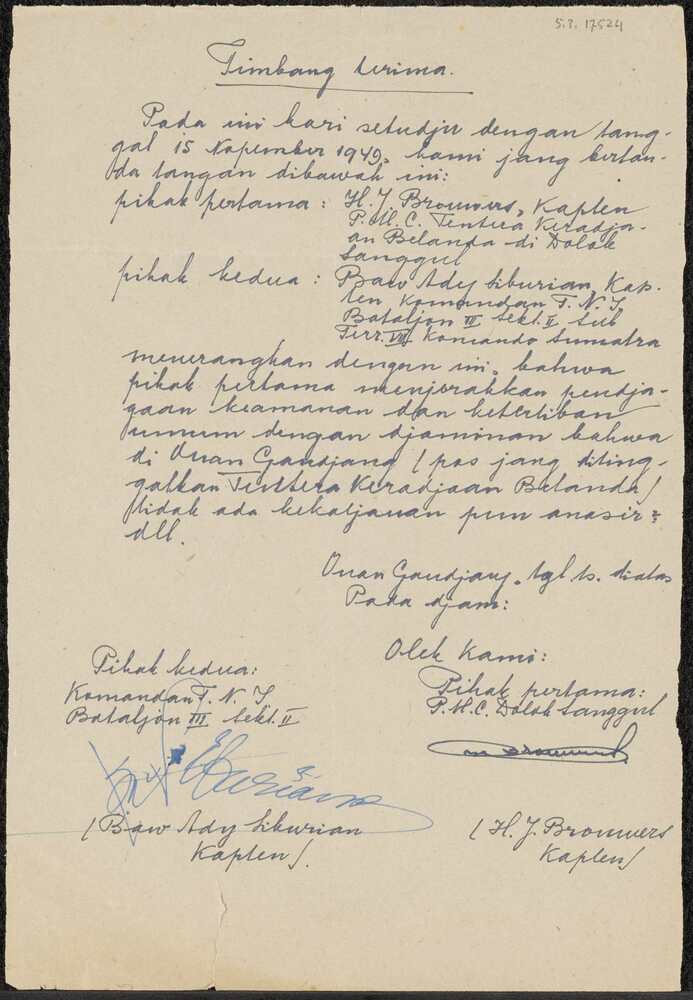 5.3. 17524
Timbang terima.
Pada ini hari setudju dengan tang-
gal 15 Nopember 1949, kami jang bertan-
da tangan dibawah ini:
pihak pertama : H. J. Brouwers, Kapten
P.M.C. Tentera Keradja-
an Belanda di Dolok
Sanggul
pihak kedua : Baw Ady Siburian, Kap-
ten Komandan T. N. I
Bataljon III Sekt. II Sub
Terr. VII Komando Sumatra
menerangkan dengan ini, bahwa
pihak pertama menjerahkan pendja-
gaan keamanan dan ketertiban
umum dengan djaminan bahwa
di Onan Gandjang / pos jang diting-
galkan Tentera Keradjaan Belanda /
tidak ada kekatjauan pun anasir2
dll.
Onan Gandjang, tgl ts. diatas
Pada djam:
Oleh Kami:
Pihak kedua:
Pihak pertama:
Komandan T. N. I
P.M.C. Dolok Sanggul
Bataljon III Sekt. II
/ Baw Ady Siburian
Kapten /.
/ H. J. Brouwers
Kapten /